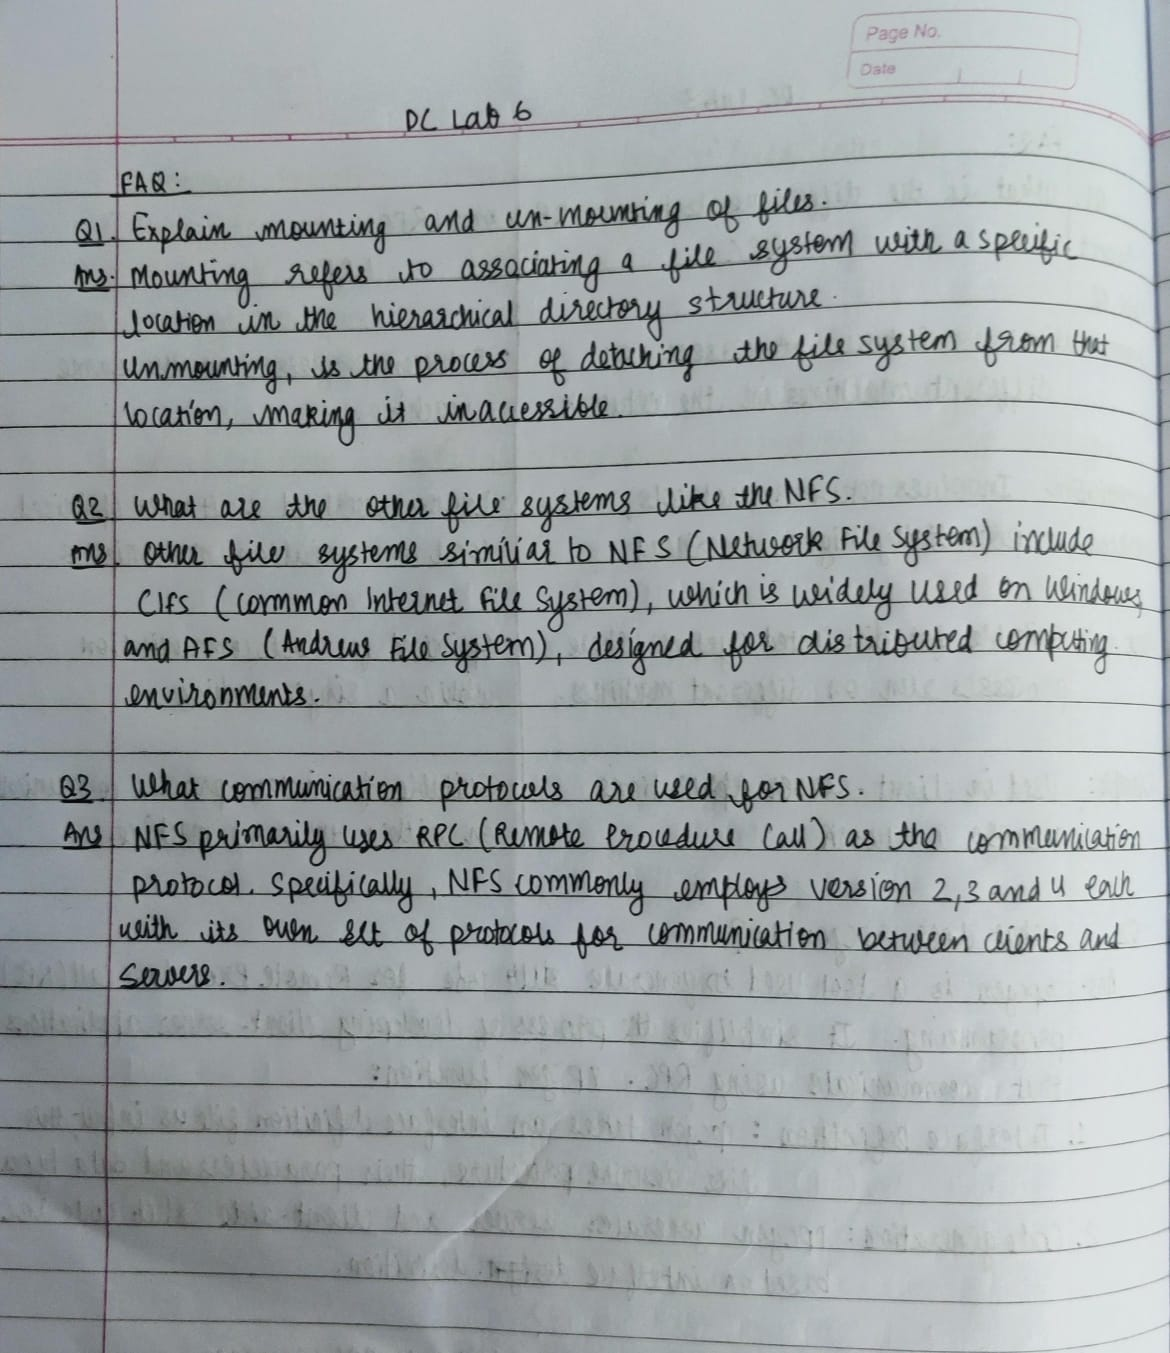 Page No.
Date
DC Lab 6
FAQ:
Q1. Explain mounting and un-mounting of files.
Ans. Mounting refers to associating a file system with a specific
location in the hierarchical directory structure.
Unmounting, is the process of detaching the file system from that
location, making it inaccessible.
Q2 What are the other file systems like the NFS.
Ans. Other file systems similar to NFS (Network File System) include
CIFS (Common Internet File System), which is widely used on Windows,
and AFS (Andrew File System), designed for distributed computing
environments.
Q3. What communication protocols are used for NFS.
Ans NFS primarily uses RPC (Remote Procedure Call) as the communication
protocol. Specifically, NFS commonly employs version 2,3 and 4 each
with its own set of protocols for communication between clients and
servers.